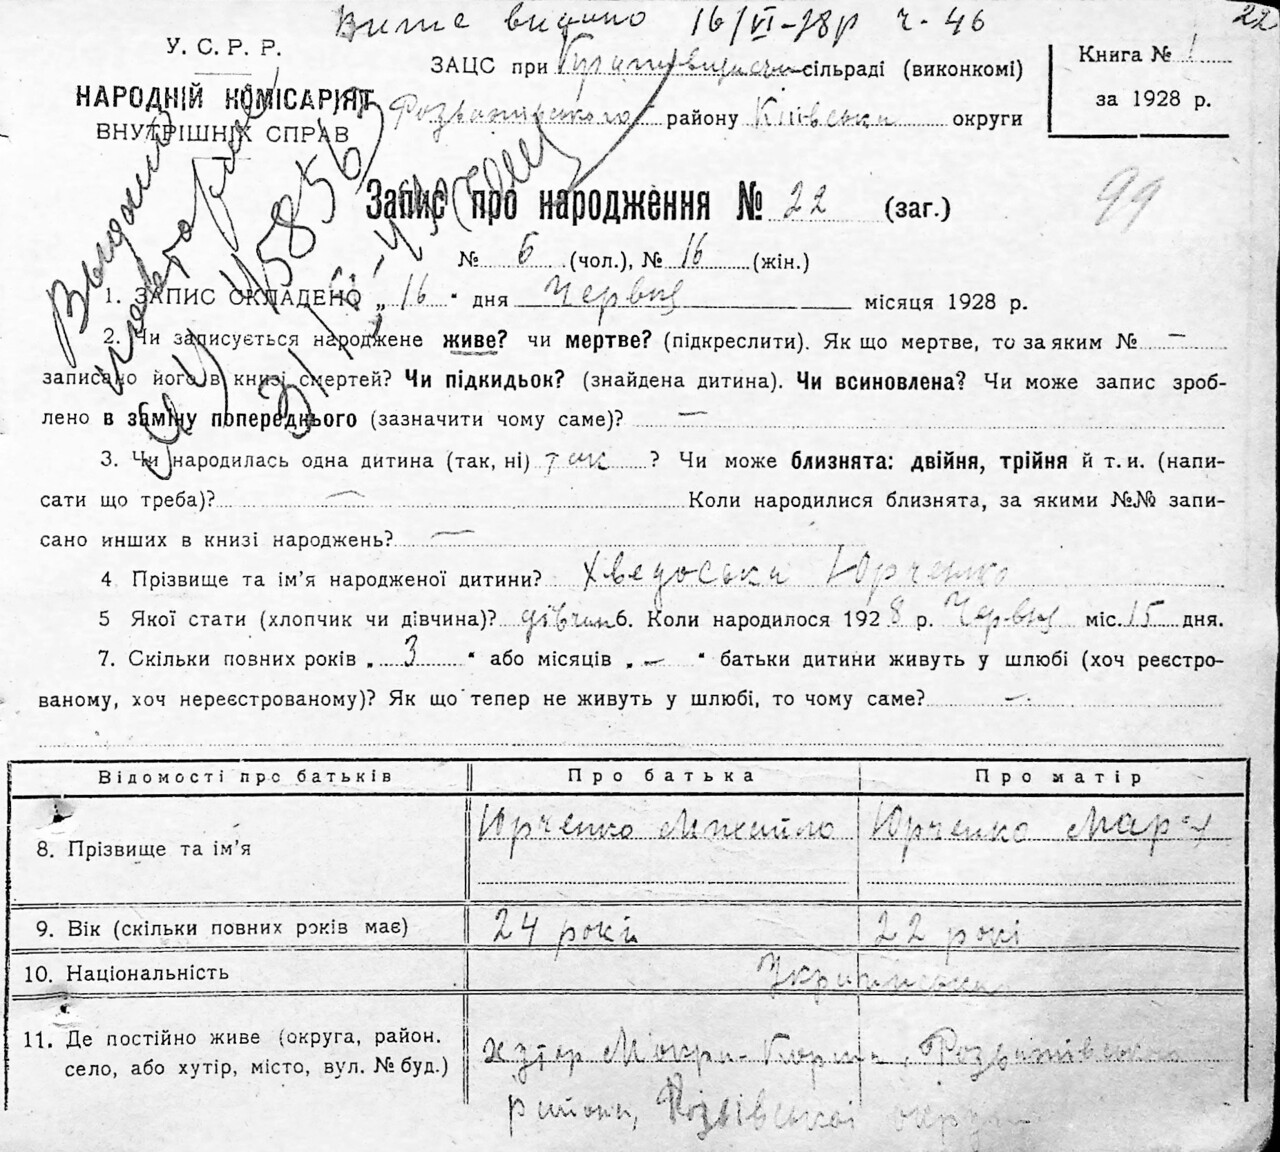 Випис видано 16/VI-28р ч. 46
22
У. С. Р. Р.
НАРОДНІЙ КОМІСАРІЯТ
ВНУТРІШНІХ СПРАВ
ЗАЦС при сільраді (виконкомі)
Розважівського району Київська округи
Книга № 1
за 1928 р.
Запис про народження № 22 (заг.)
99
№ 6 (чол.), № 16 (жін.)
1. ЗАПИС СКЛАДЕНО „16" дня Червця місяця 1928 р.
2. Чи записується народжене живе? чи мертве? (підкреслити). Як що мертве, то за яким № —
записано його в книзі смертей? Чи підкидьок? (знайдена дитина). Чи всиновлена? Чи може запис зроб-
лено в заміну попереднього (зазначити чому саме)? —
3. Чи народилась одна дитина (так, ні) так ? Чи може близнята: двійня, трійня й т. и. (напи-
сати що треба)? — Коли народилися близнята, за якими №№ запи-
сано инших в книзі народжень? —
4 Прізвище та ім'я народженої дитини? Хведоська Юрченко
5 Якої стати (хлопчик чи дівчина)? дівчин 6. Коли народилося 1928 р. Червця міс. 15 дня.
7. Скільки повних років „3" або місяців „—" батьки дитини живуть у шлюбі (хоч реєстро-
ваному, хоч нереєстрованому)? Як що тепер не живуть у шлюбі, то чому саме? —
Відомості про батьків Про батька Про матір
8. Прізвище та ім'я Юрченко Михайло Юрченко Мар'я
9. Вік (скільки повних років має) 24 роки 22 рокі
10. Національність Українська
11. Де постійно живе (округа, район. хутор Мокра-Корма, Розважівського
село, або хутір, місто, вул. № буд.) района, округи
Выдано
повторное
45856